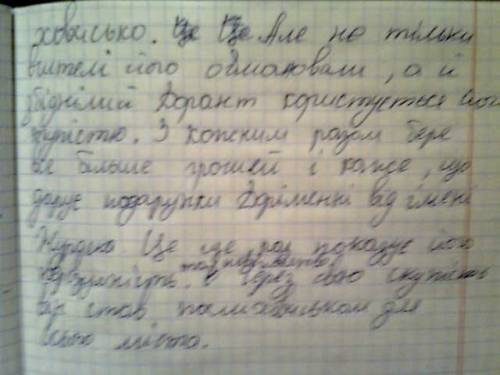 ховисько. Це Це Але не тільки
вчителі його обманювали, а й
збіднілий Дорант користується його
дурістю. З кожним разом бере
все більше грошей і каже, що
дарує подарунки Доріменні від імені
Журдена Це ще раз показує його
та невихованість. Через свою скупість
він став посміховиськом для
всього міста.